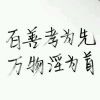 百善孝为先
万物淫为首